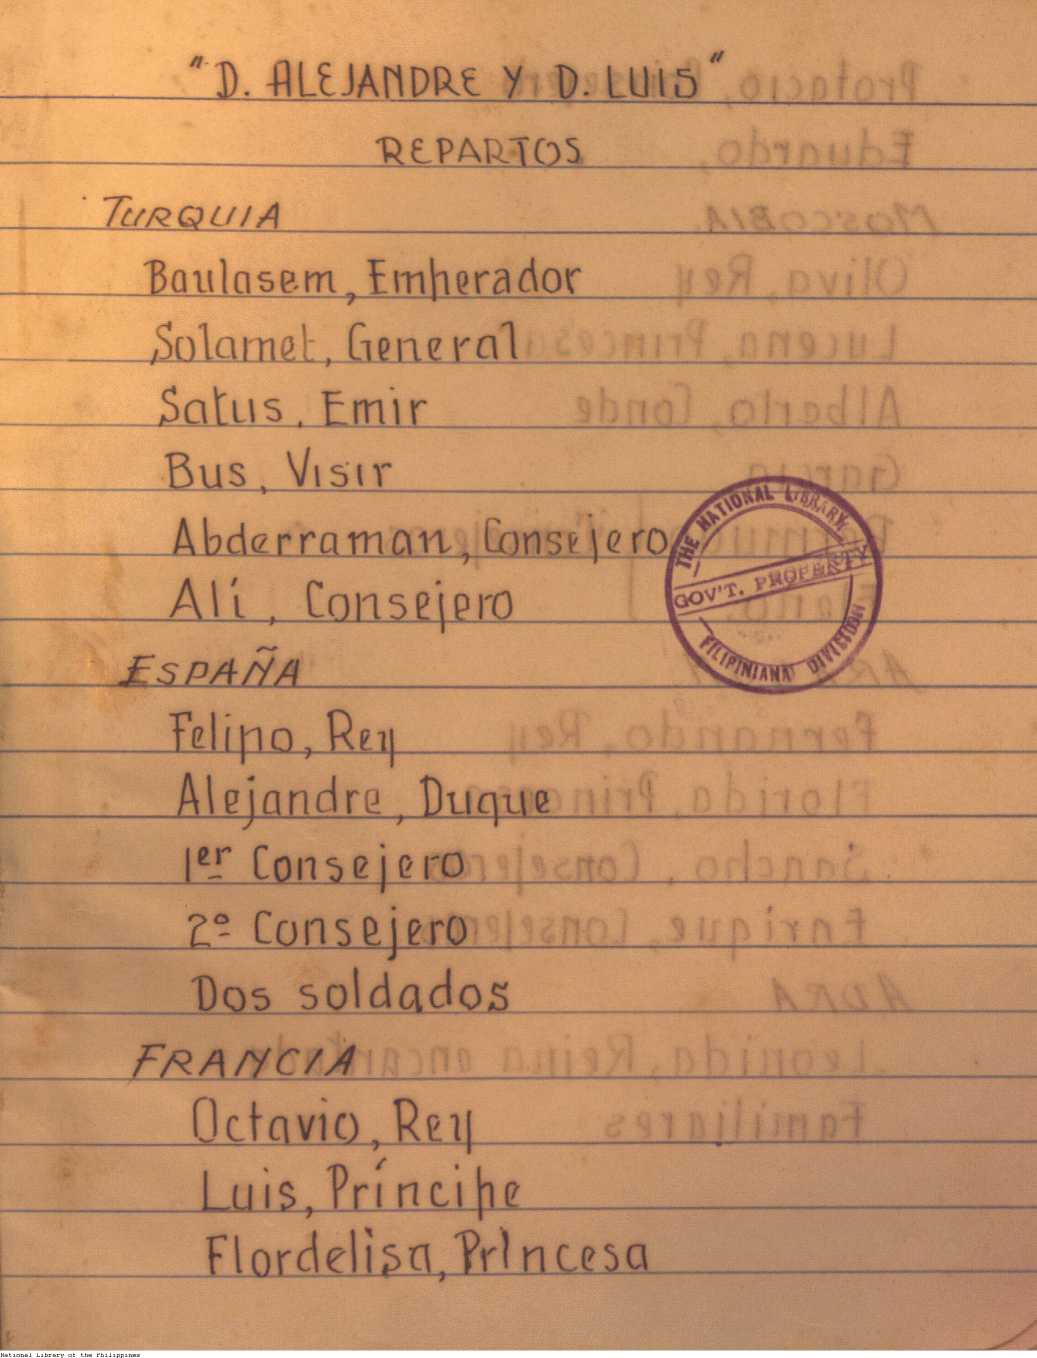 "D. ALEJANDRE Y D. LUIS"
REPARTOS
TURQUIA
Baulasem, Emperador
Solamet, General
Satus, Emir
Bus, Visir
Abderraman, Consejero
Alí, Consejero
ESPAÑA
Felipo, Rey
Alejandre, Duque
1er Consejero
2º Consejero
Dos soldados
FRANCIA
Octavio, Rey
Luis, Príncipe
Flordelisa, Princesa
THE NATIONAL LIBRARY
GOV'T. PROPERTY
FILIPINIANA DIVISION
National Library of the Philippines